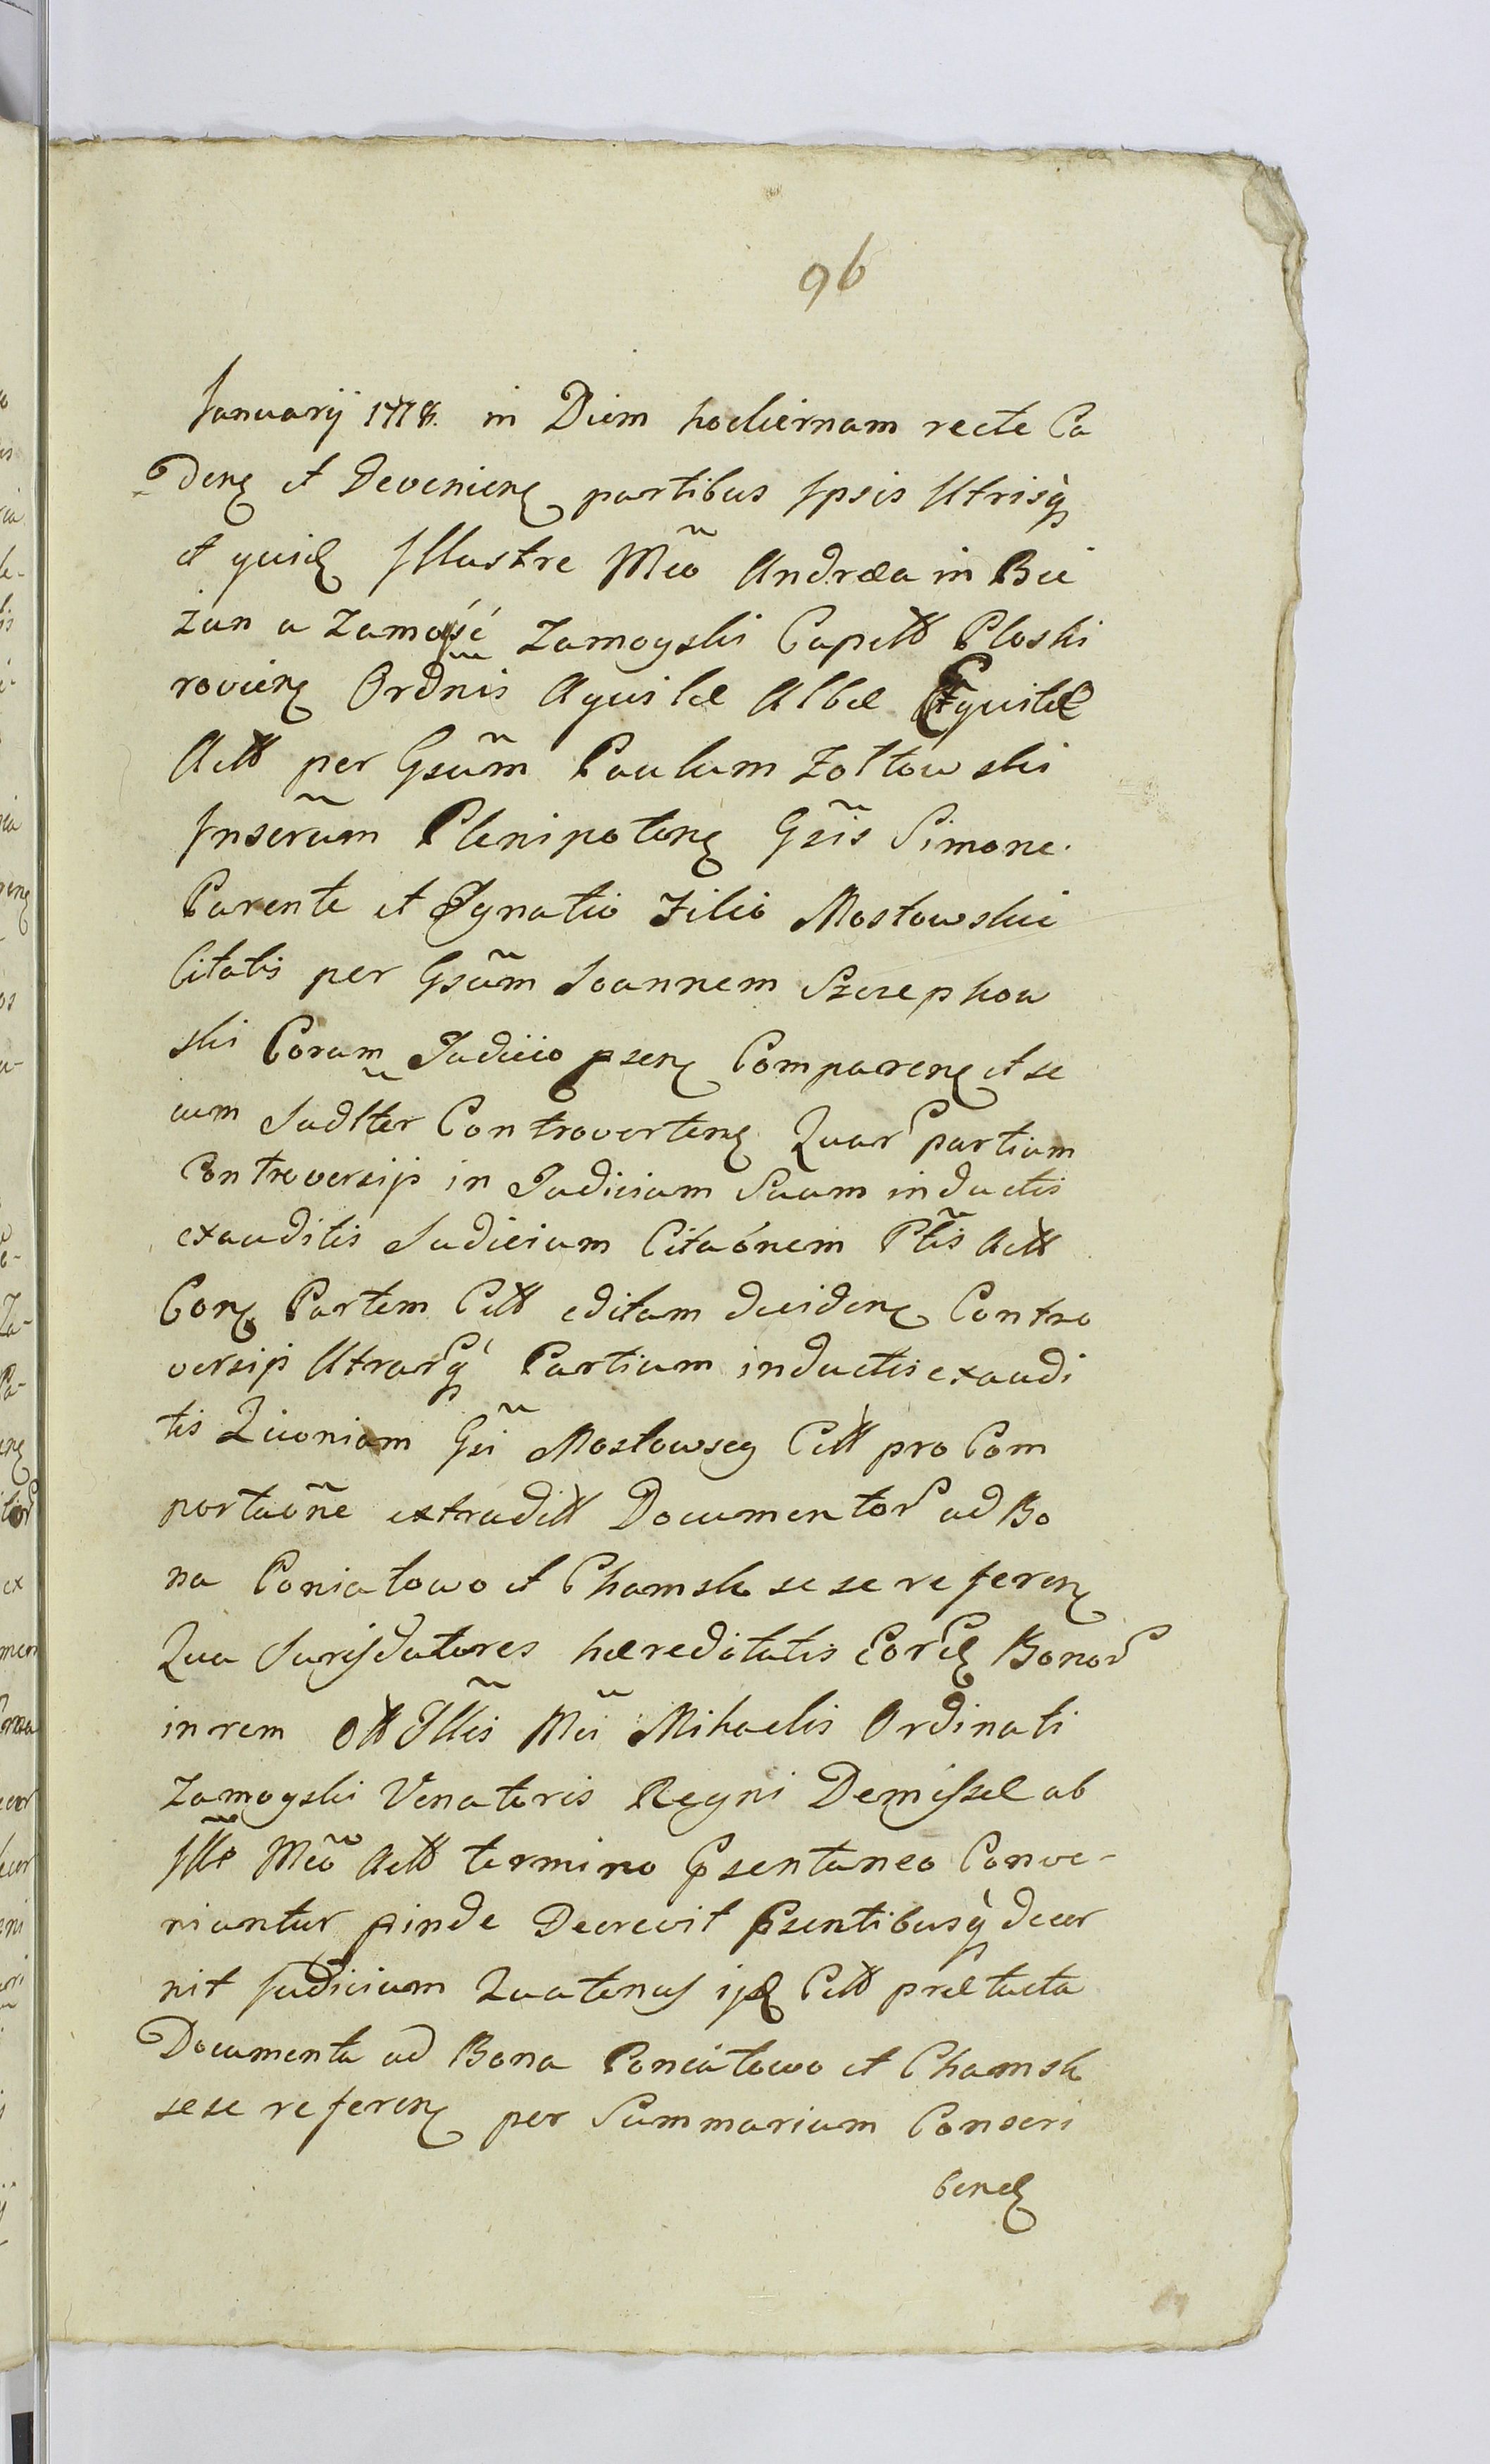 96
Januarij 1778. in Diem hodiernam recte Ca
denę et Devenienę partibus Ipsis Utrisq̀
et quidę Illustre Mĉo Andræa in Bie
żun a Zamość Zamoyski Capitt Ploski
rovienę Ordñis Aquilæ Albæ Equite
Actt per Gsũm Paulum Zoltowski
Inserũm Plenipotenę Gsĩs Simone.
Parente et Ignatio Filio Mostowskie
Citatis per Gsũm Joannem Szczepkow
ski Coram Judicio psenę Comparenę et se
cum Judlter Controvertenę Quar partium
Controversijs in Judicium Suum inductis
exauditis Judicium Citaónem Ptĩs Actt
Conę Partem Citt editam decidenę Contro
versijs Utrarq́ Partium inductis exaudi
tis Quoniam Gsĩ Mostowscy Citt pro Com
portaoñe extraditt Documentor ad Bo
na Poniatowo et Chamsk sese referenę
Qua Jurisdatores hæreditatis Eordę Bonor
in rem Ott Illĩs Mĉi Mihaelis Ordinati
Zamoyski Venatoris Regni Demissæ ab
Illr̃e Mĉo Actt termino Psentaneo Conve-
niuntur pinde Decrevit Psentibusq̀ decer
nit Judicium Quatenus ijdę Citt prætacta
Documenta ad Bona Poniatowo et Chamsk
sese referenę per Summarium Conscri
bendę